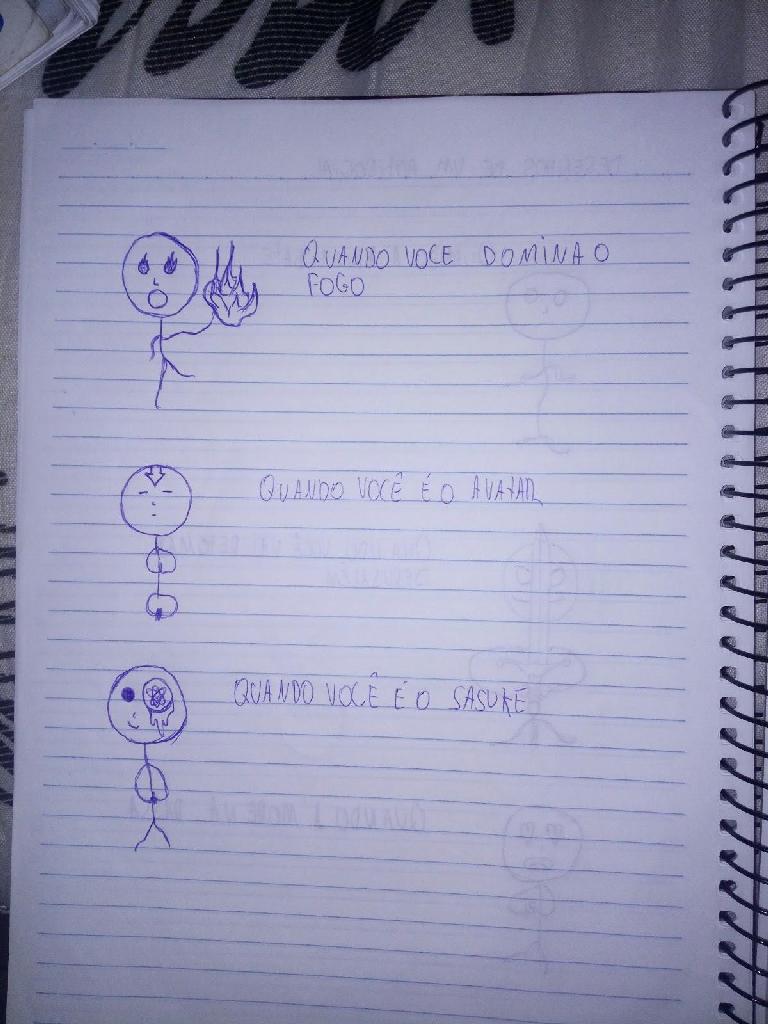 QUANDO VOCE DOMINA O
FOGO
QUANDO VOCÊ É O AVATAR
QUANDO VOCÊ É O SASUKE